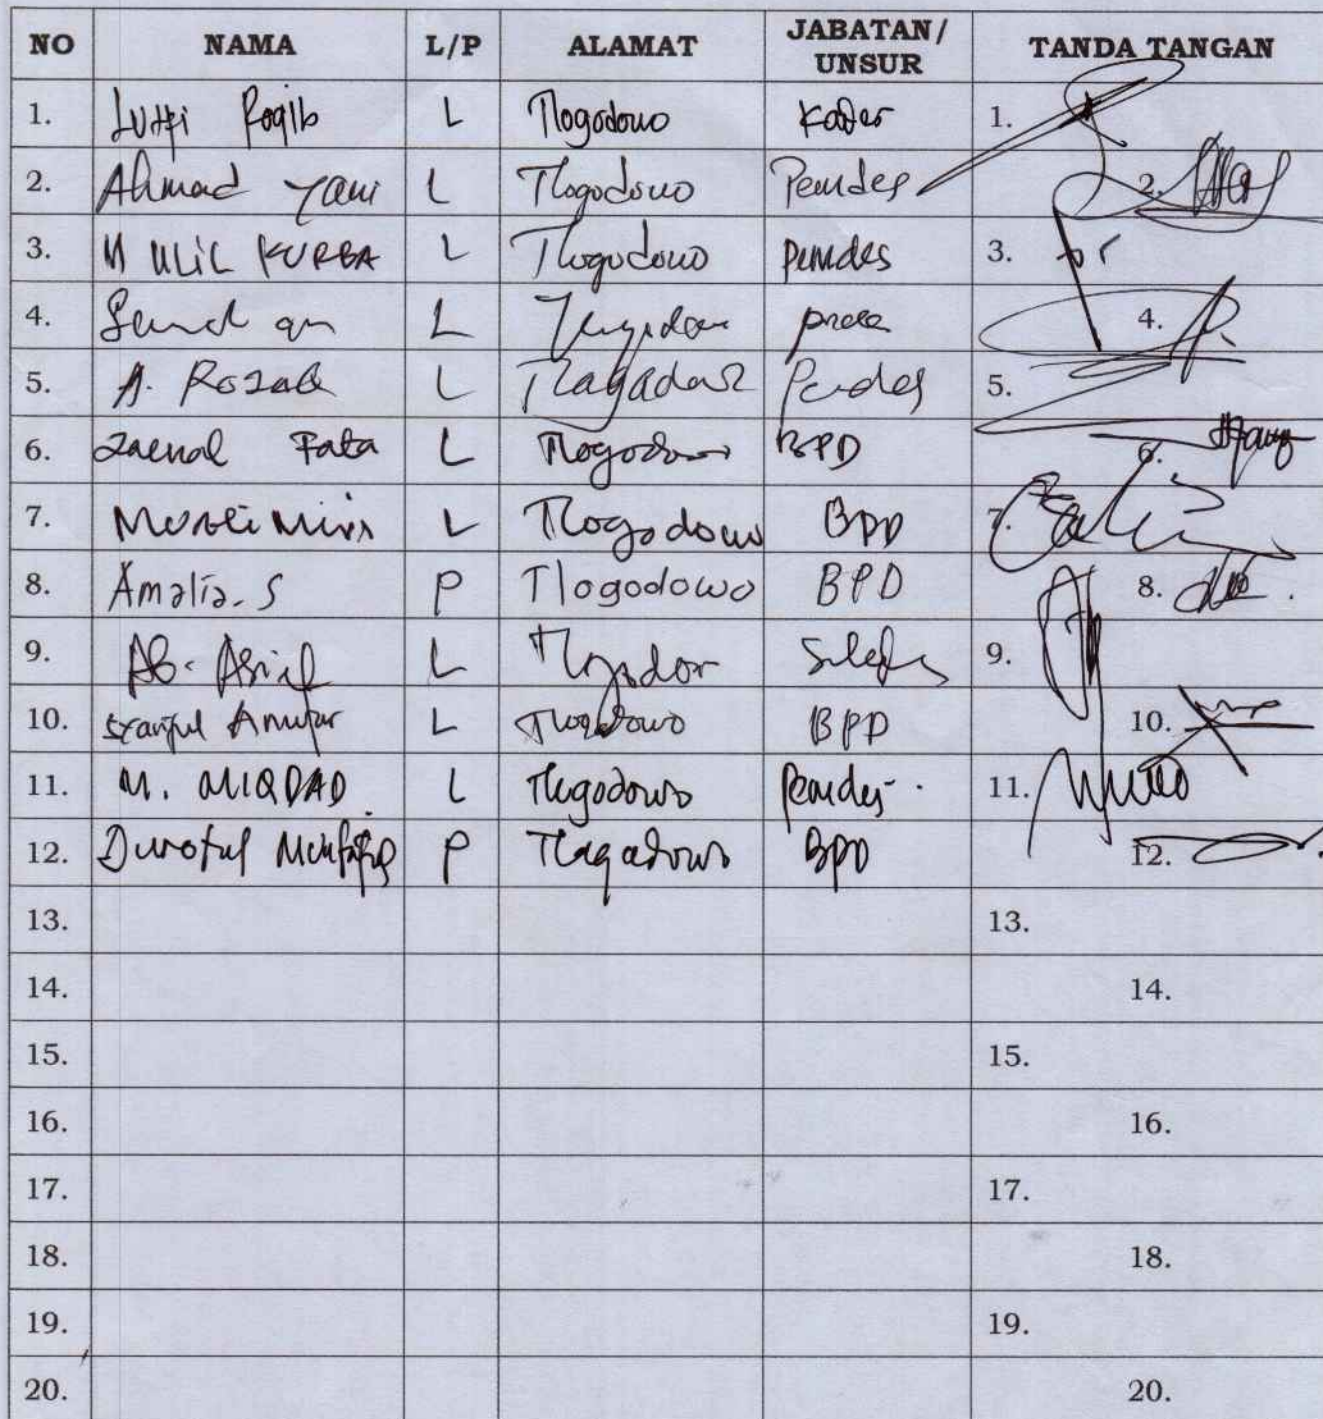 NO NAMA L/P ALAMAT JABATAN/ UNSUR TANDA TANGAN
1. Lutfi Roqib L Tlogodowo Kader 1.
2. Ahmad Yani L Tlogodowo Pemdes 2.
3. M ULIL KURBA L Tlogodowo pemdes 3.
4. L 4.
5. A. Rozak L Pemdes 5.
6. Zaenal Fata L Tlogodowo BPD 6.
7. L Tlogodowo BPD 7.
8. Amalia. S P Tlogodowo BPD 8.
9. AB. Arief L 9.
10. L Tlogodowo BPD 10.
11. M. MIQDAD L Tlogodowo Pemdes. 11.
12. P Tlogodowo BPD 12.
13. 13.
14. 14.
15. 15.
16. 16.
17. 17.
18. 18.
19. 19.
20. 20.